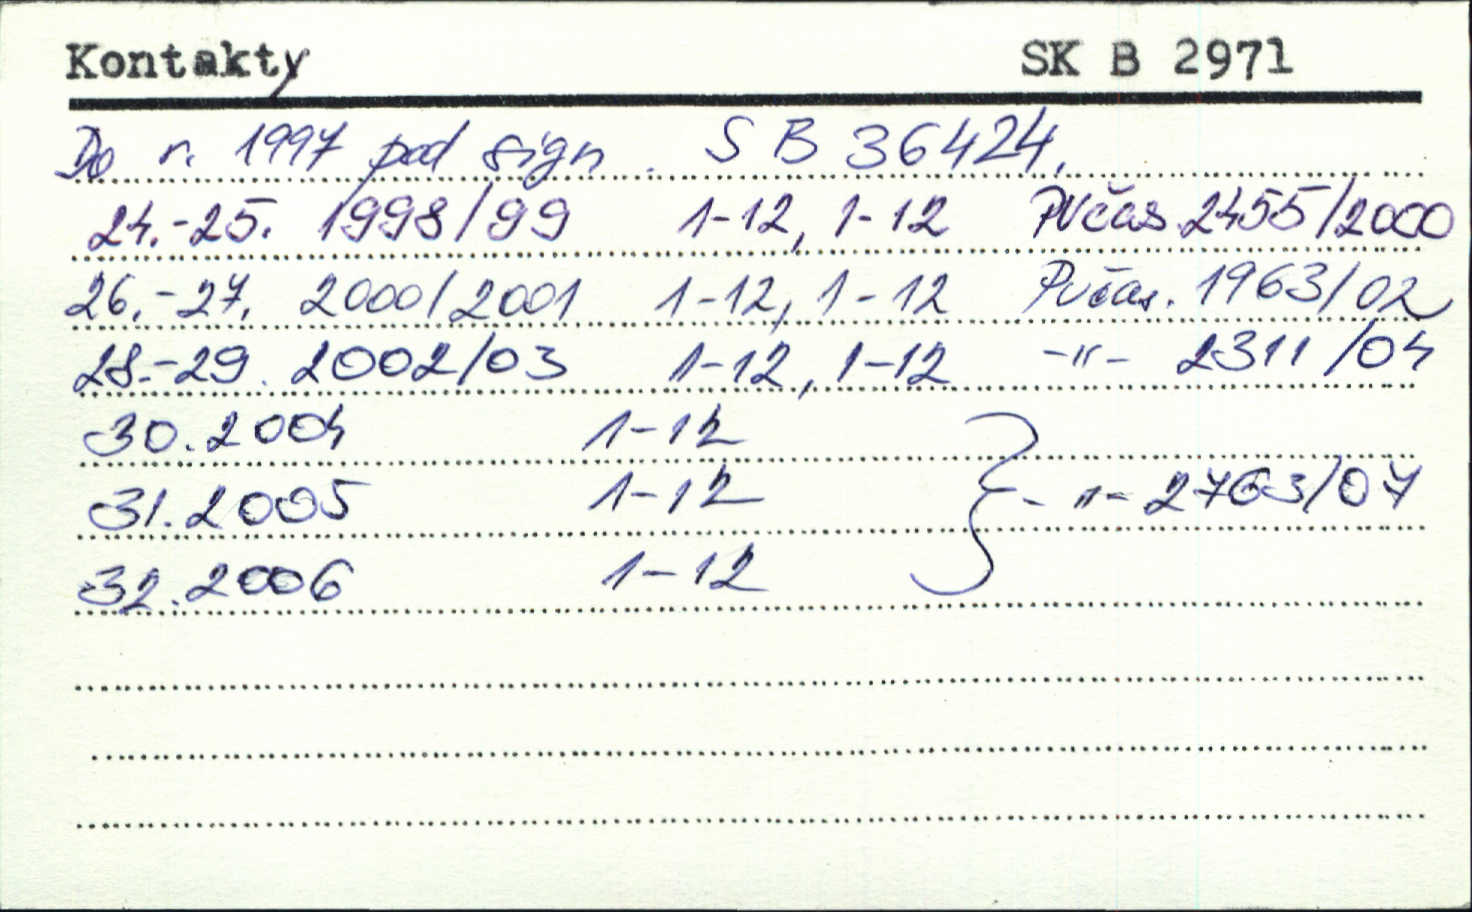 Kontakty SK B 2971
Do r. 1997 pod sign. SB 36424.
24.-25. 1998/99 1-12, 1-12 PVčas. 2455/2000
26.-27. 2000/2001 1-12, 1-12 PVčas. 1963/02
28.-29. 2002/03 1-12, 1-12 -"- 2311/04
30. 2004 1-12
31. 2005 1-12 -"- 2763/07
32. 2006 1-12